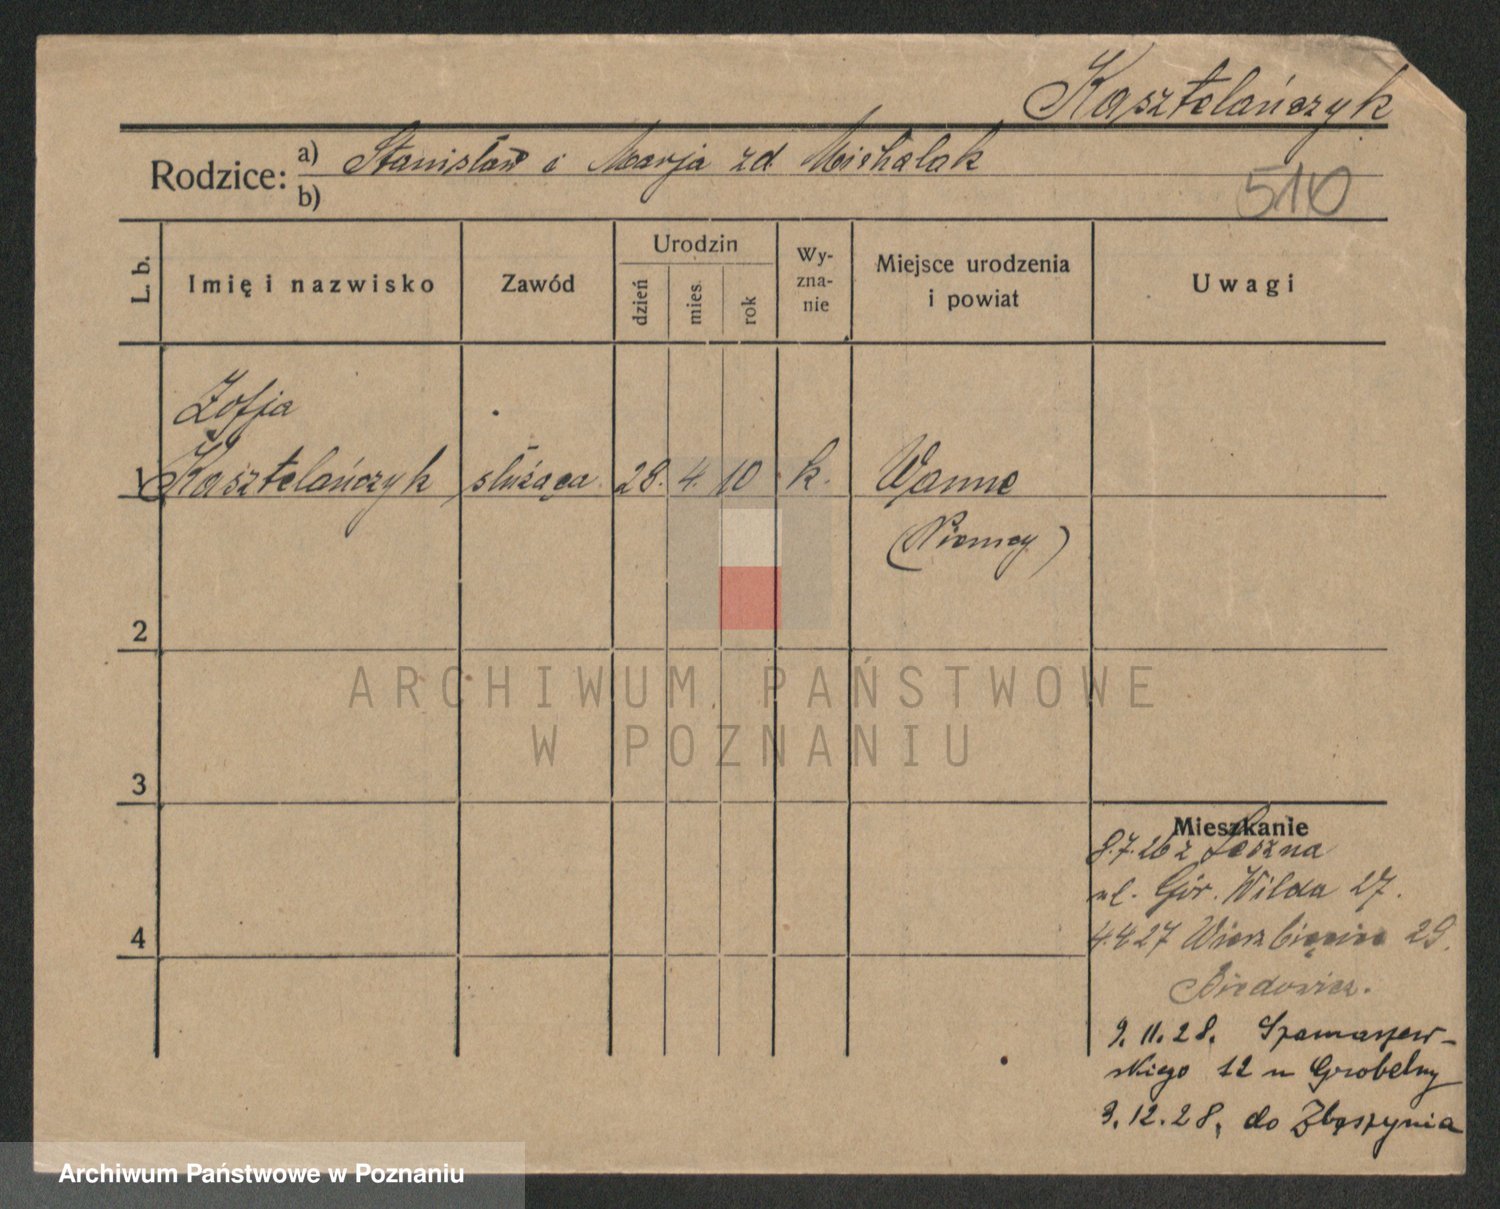 Kasztelańczyk
Rodzice: a) Stanisław i Marja zd. Michalak
b)
510
L. b.
Imię i nazwisko
Zawód
Urodzin
dzień
mies.
rok
Wy-
zna-
nie
Miejsce urodzenia
i powiat
Uwagi
Zofja
1 Kasztelańczyk służąca 28. 4. 10 k. Wanne
(Niemcy)
2
3
4
Mieszkanie
8.7.26 z Leszna
ul. Gór. Wilda 27.
4.4.27 Wierzbięcice 29.
9.11.28. Szamarzew-
skiego 12 u Grobelny
3.12.28, do Zbąszynia
ARCHIWUM PAŃSTWOWE
W POZNANIU
Archiwum Państwowe w Poznaniu